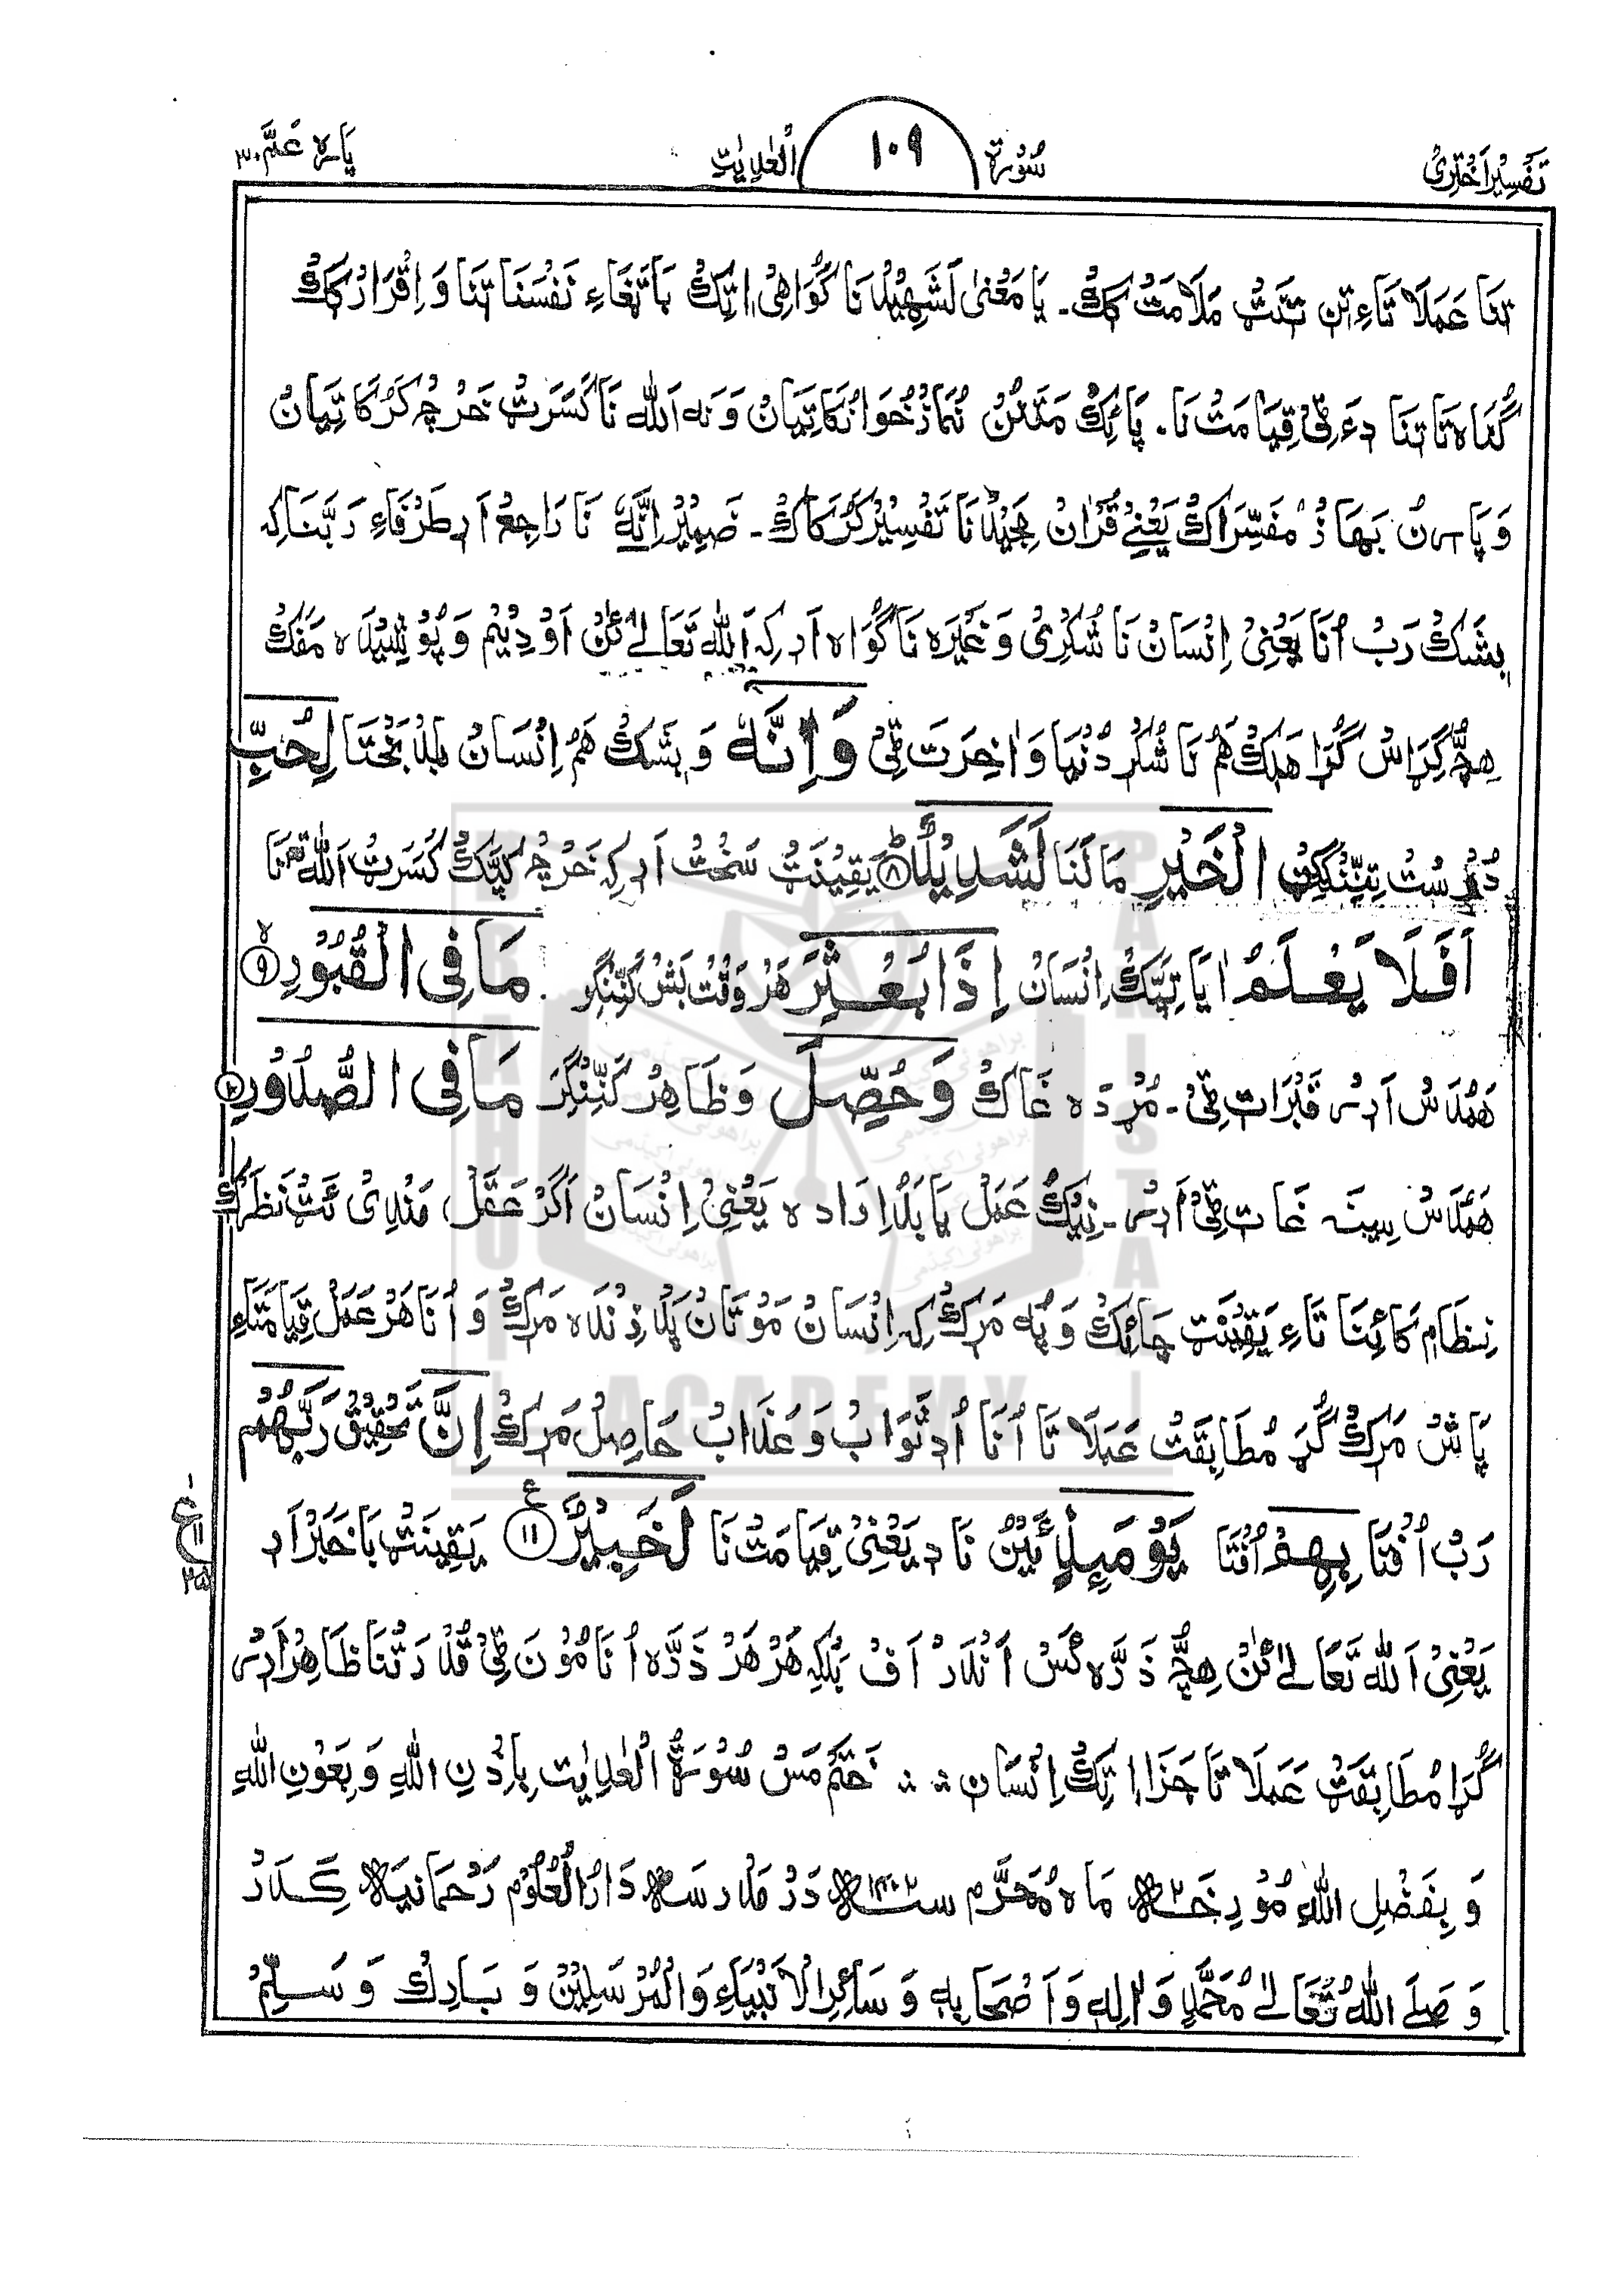 تَفْسِیْر اَخْتَرِیْ سُوْرَۃ ۱۰۹ اَلْعٰدِیٰتِ پَارَہ عَمَّ ۳۰
تِنَا عَمَلَا تَاءِ تِن تَنتْ مَلَامَتْ کَکْ۔ یَا مَعْنیٰ لَشَھِیْدٌ نَا گُوَاھِیْ اِتِکْ بَاتَغَاءِ نَفْسَنَا تِنَا وَ اِقْرَارْ کَکْ
گُنَاہ تَا تِنَا دےَ ٹِیْ قِیَامَتْ نَا۔ پَائِکْ مَتَنُن نُمَاذْ خُوَانُکَا تِیَانْ وَ نَہ اَللّٰہ نَا کَسَرَتْ خَرْچْ کَرُکَا تِیَانْ
وَ پَارہ نْ بَھَاذْ مُفَسِّرَاکْ یَعْنِیْ قُرْاٰنْ مَجِیْدْ نَا تَفْسِیْرْ کَرُکَاکْ۔ ضَمِیْرْ اِنَّہٗ نَا رَاجِعْ اَرے طَرْفَاءِ رَبَّنَا کِہ
بِشَکْ رَبْ اُنَا یَعْنِیْ اِنْسَانْ نَا شُکْرِیْ وَ غَیْرَہ نَا گُوَاہ اَرے کِہ اَللّٰہ تَعَالےٰ ئَنْ اَوْ دِیْم وَ پُوْشِیْدَہ مَفَکْ
ھِچْ گِرَاسْ گُرَا ھَلَکْ ھَمْ نَا شُکْرْ دُنْیَا وَاٰخِرَتْ ٹِیْ وَاِنَّہٗ وَ بِشَکْ ھَمْ اِنْسَانْ بَدْ بَخْتَا لِحُبِّ
دُوْسْتْ تِنِنْگِکِنْ الْخَیْرِ مَالْنَا لَشَدِیْدٌ ۸ یَقِیْنَتْ سَخْتْ اَرے کِہ خَرْچْ کَپَکْ کَسَرَتْ اَللّٰہ نَا
اَفَلَا یَعْلَمُ اٰیَا تِپَکْ اِنْسَانْ اِذَا بُعْثِرَ ھَرْ وَقْتْ بَشْ کَنِنْگِر مَا فِی الْقُبُوْرِ ۹
ھَمْدَاسْ اَرے قَبْرَاتِ ٹِیْ۔ مُرْدَہ غَاکْ وَحُصِّلَ وَ ظَاھِرْ کَنِنْگِرَ مَا فِی الصُّدُوْرِ ۱۰
ھَمْدَاسْ سِیْنَہ غَاتِ ٹِیْ اَرے۔ نِیْکْ عَمَلْ یَا بَدْ اِرَادہ یَعْنِیْ اِنْسَانْ اَگَرْ عَقَلْ، مَنْدِیْ ئَتْ نَظَرْ کَکْ
نِظَامِ کَائِنَا تَاءِ یَقِیْنَتْ چَائِکْ وَ پُہ مَرِکْ کِہ اِنْسَانْ مَوْتَانْ پَدْ زِنْدَہ مَرِکْ وَ اُنَا ھَرْ عَمَلْ قِیَامَتَاءِ
پَاشْ مَرِکْ گُرَ مُطَابِقَتْ عَمَلَا تَا اُنَا اُدے ثَوَابْ وَ عَذَابْ حَاصِلْ مَرِکْ اِنَّ تَحْقِیْقْ رَبَّھُمْ
رَبْ اُفْتَا بِھِمْ اُفْتَا یَوْمَئِذٍ ئَیْنْ نَا دے یَعْنِیْ قِیَامَتْ نَا لَخَبِیْرٌ ۱۱ یَقِیْنَتْ بَا خَبَرْ اَرے
یَعْنِیْ اَللّٰہ تَعَالےٰ ئَنْ ھِچْ ذَرَّہ ئَسْ اَنْدَرْ اَفْ بَلکِہ ھَرْ ھَرْ ذَرَّہ اُنَا مُوْنَ ٹِیْ قُدْرَتْنَا ظَاھِرْ اَرے
گُرَا مُطَابِقَتْ عَمَلَا تَا جَزَا اِتِکْ اِنْسَان۔ خَتَمْ مَسْ سُوْرَۃُ الْعٰدِیٰت بِاِذْنِ اللّٰہِ وَ بِعَوْنِ اللّٰہِ
وَ بِفَضْلِ اللّٰہِ مُوْرِخَہ ۲ مَاہ مُحَرَّم سنہ ۱۴۰۲ھ دَرْ مَدْرَسَہ دَارُالْعُلُوْم رَحْمَانِیَہ کَلَارْ
وَ صَلَّے اللّٰہُ تَعَالےٰ مُحَمَّدٍ وَّاٰلِہٖ وَاَصْحَابِہٖ وَ سَائِرِ الْاَنْبِیَاءِ وَالْمُرْسَلِیْنْ وَ بَارِكْ وَ سَلِّمْ
BRAHUI ACADEMY PAKISTAN